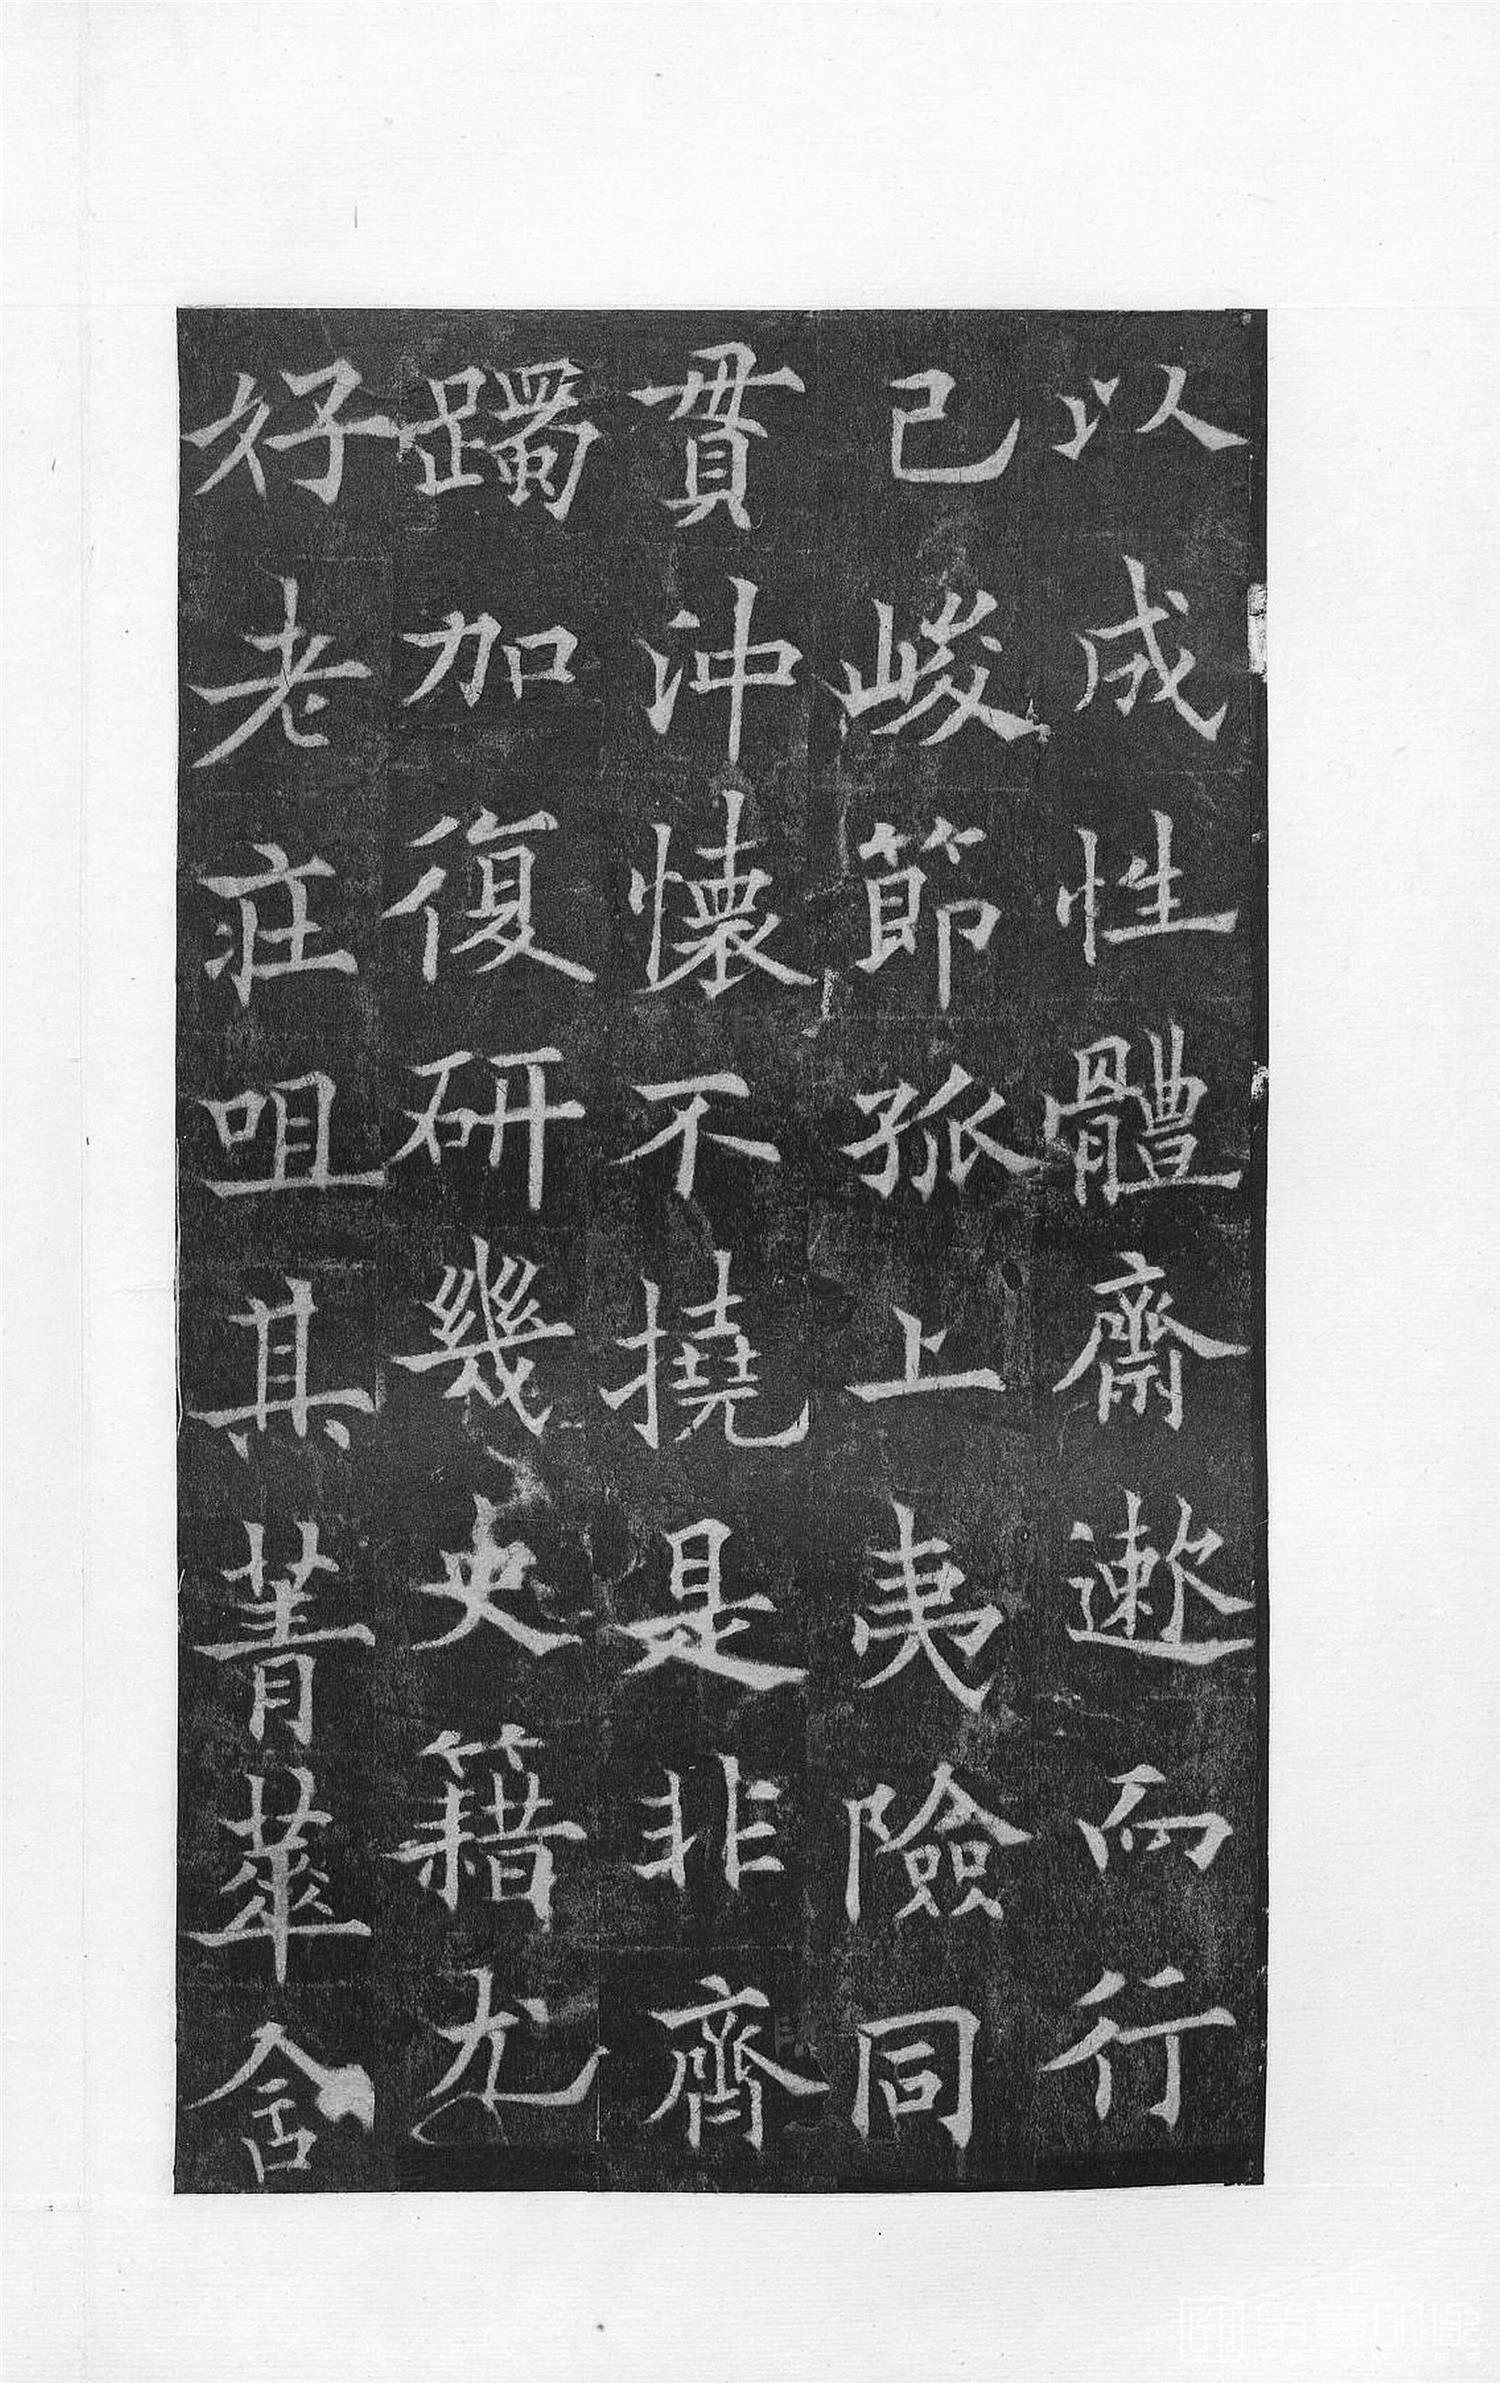 以成性體齋遬而行
己峻節孤上夷險同
貫沖懷不撓是非齊
躅加復研幾史籍尤
好老莊咀其菁華含